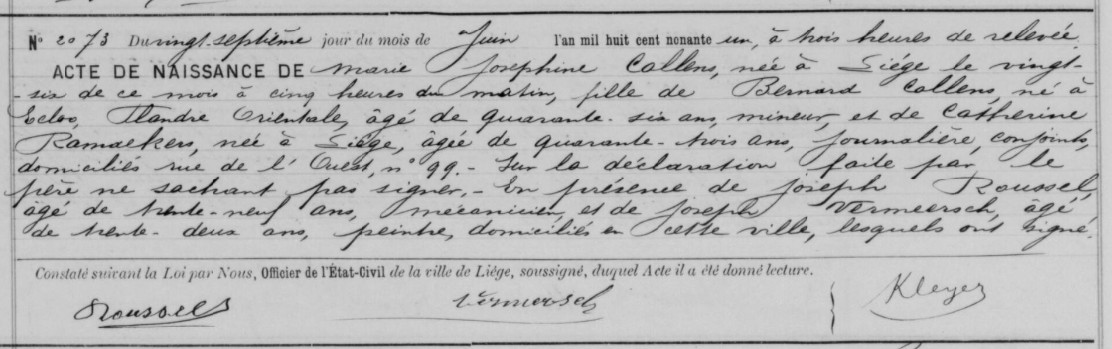 N° 2073 Du vingt-septième jour du mois de Juin l'an mil huit cent nonante un, à trois heures de relevée
ACTE DE NAISSANCE DE Marie Josephine Callens, née à Liége le vingt-
-six de ce mois à cinq heures du matin, fille de Bernard Callens, né à
Ecloo, Flandre Orientale, âgé de quarante-six ans, mineur, et de Catherine
Ramaekers, née à Liége, âgée de quarante-trois ans, journalière, conjoints,
domiciliés rue de l'Ouest, n° 99.- Sur la déclaration faite par le
père ne sachant pas signer.- En présence de Joseph Roussel,
âgé de trente-neuf ans, mécanicien, et de Joseph Vermeersch, âgé
de trente-deux ans, peintre, domiciliés en cette ville, lesquels ont signé.
Constaté suivant la Loi par Nous, Officier de l'État-Civil de la ville de Liége, soussigné, duquel Acte il a été donné lecture.
Roussel Vermeersch Kleyer